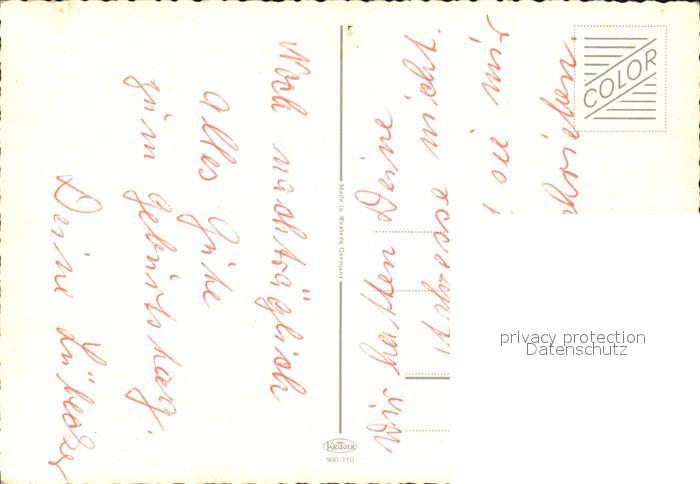 Noch nachträglich
alles Gute
zum Geburtstag.
Deine Lübecker
Wir hatten Deine
Adresse nicht.
sie mir
COLOR
Made in Western Germany
KRÜGER
900/110
privacy protection
Datenschutz